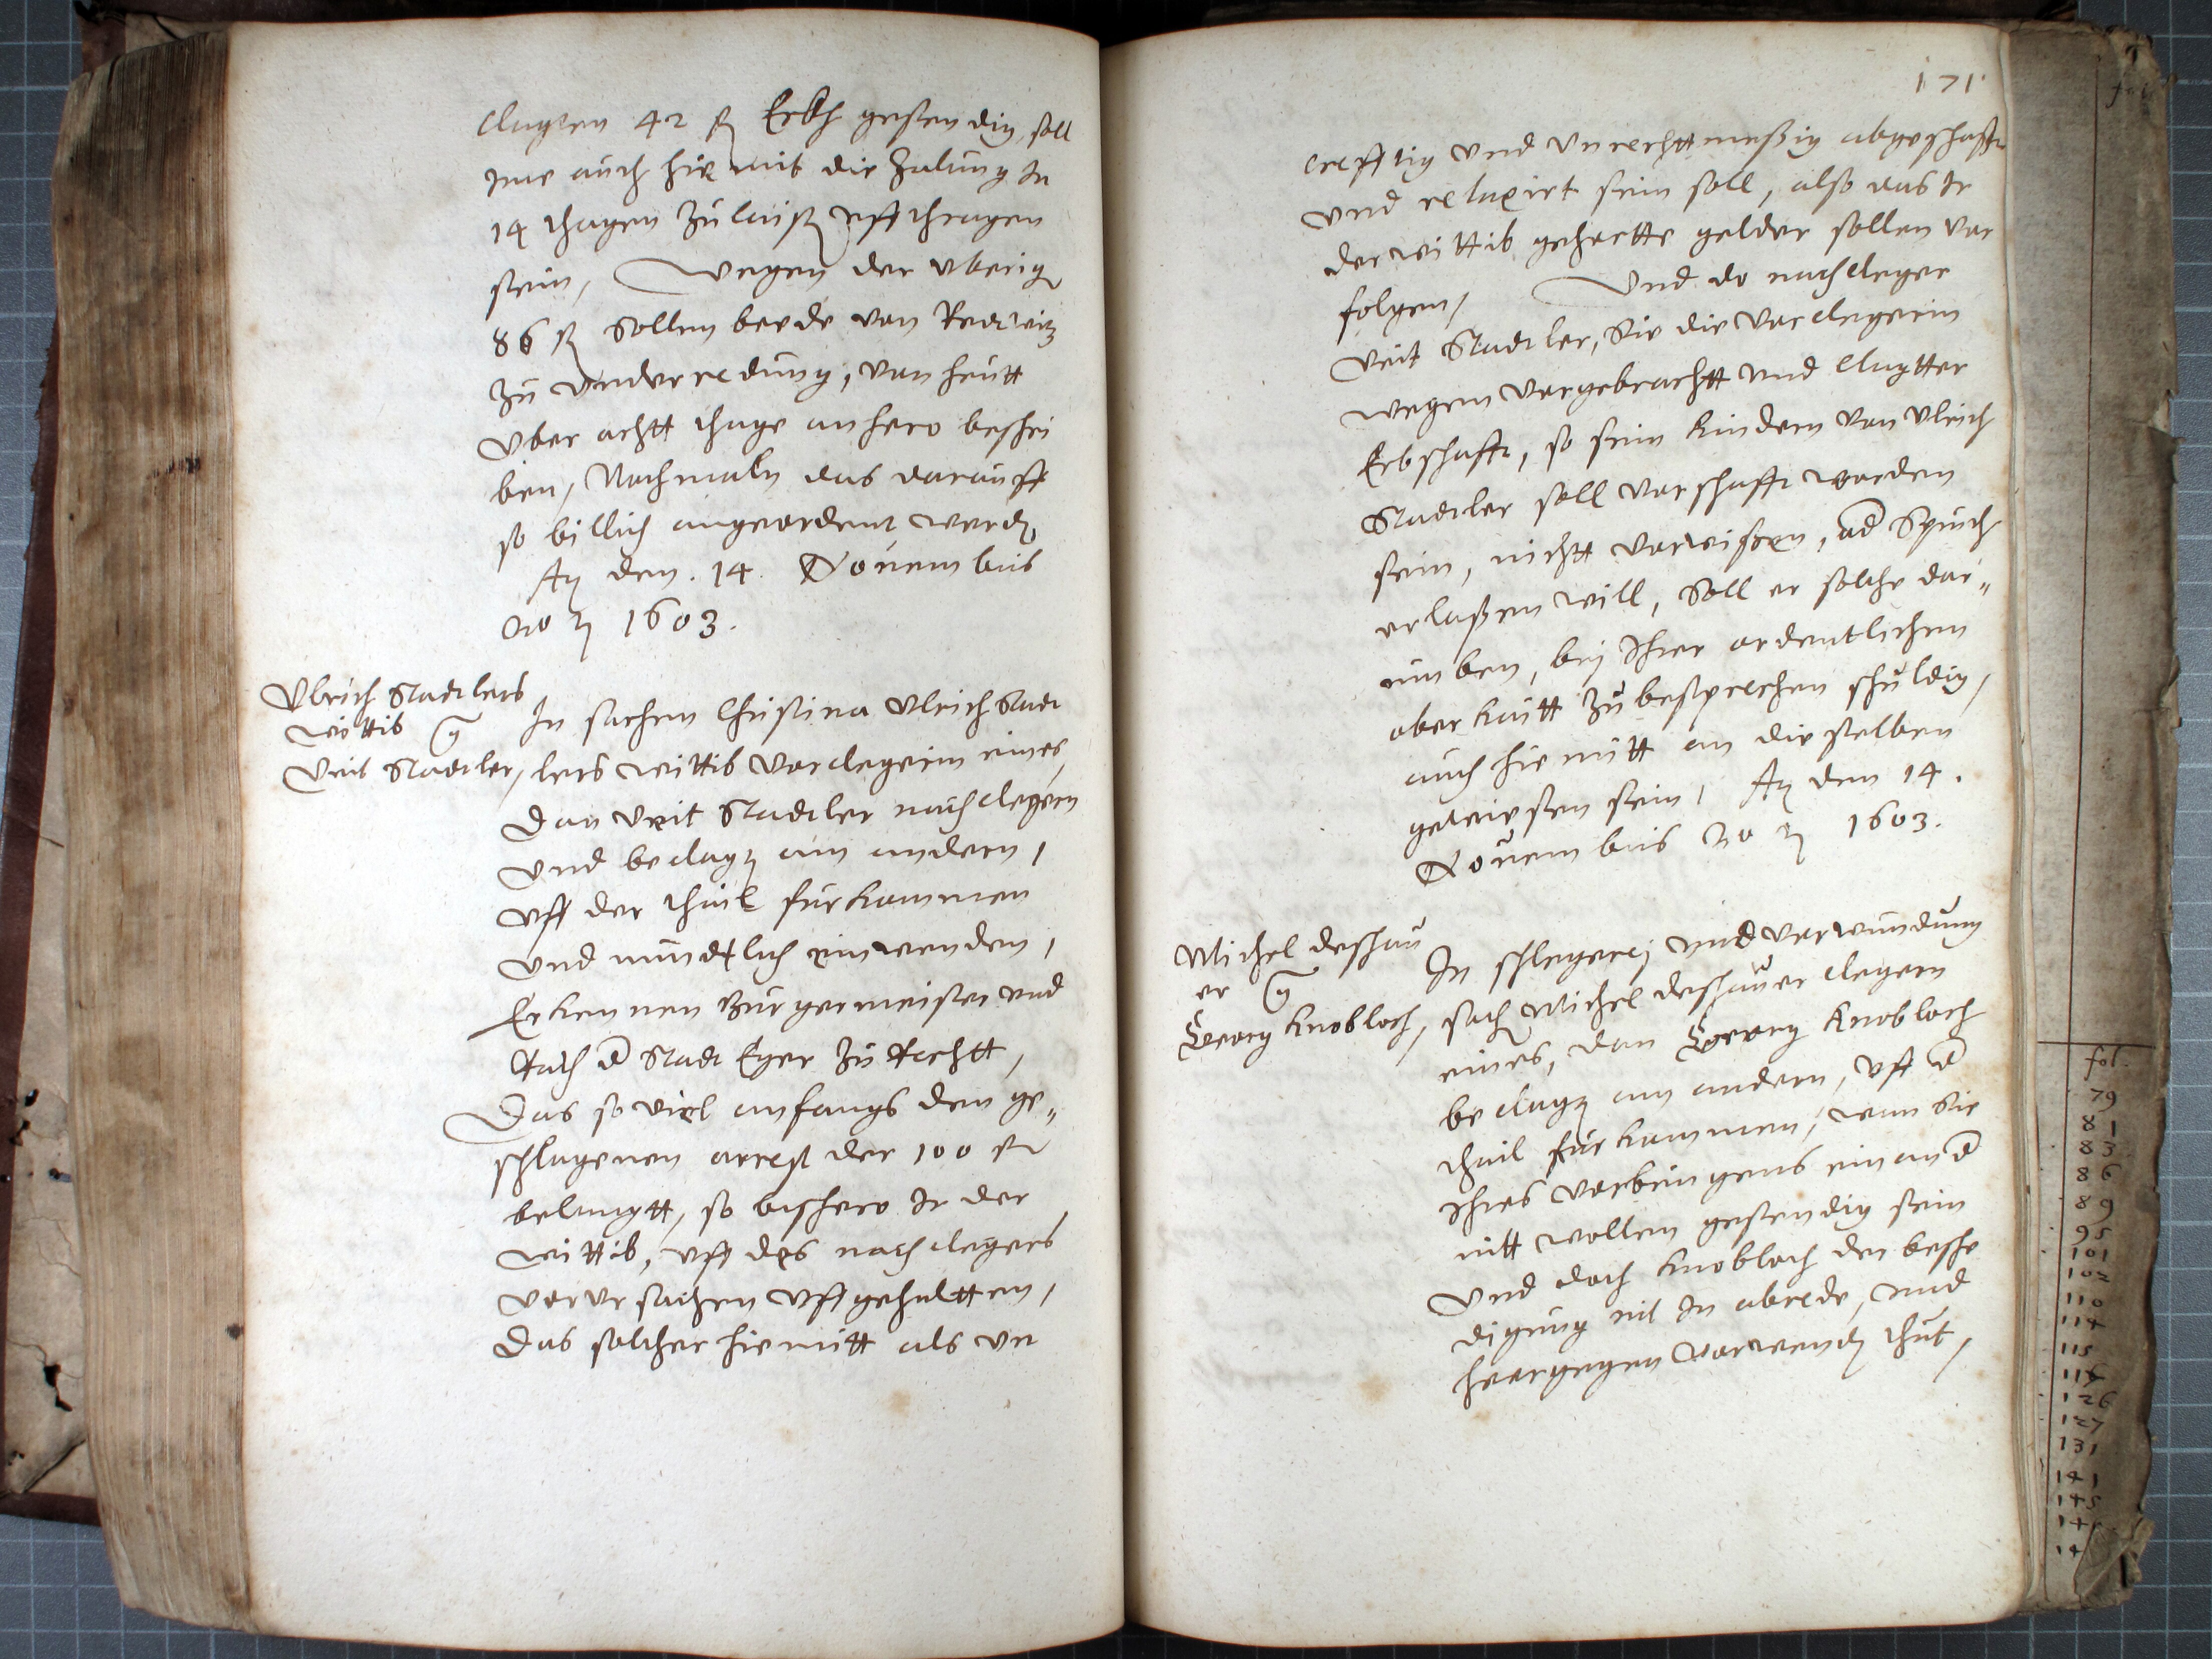 clagten 42 fl gestendig, soll
Ime auch hiemit die Zalung In
14 thagen Zulaist ufftragen
sein, Wegen der uberig
86 fl Sollen beede von Redwitz
Zu Underredung, von heutt
Uber achtt thage anhero beschei
den, Nachmaln das darauff
so billich angeordent werdn
den. 14. Novembris
Ao 1603.
Ulrich Stadlers
wittib
Veit Stadtler,
In sachen Christina Ulrich Stadt
lers wittib Vorclegerin eines,
Dan Veit Stadtler nachclegern
Und beclagtn am andern,
Uff der theil furkommen
Und mundtlich einwenden,
Erkennen Burgermeister und
Rath d Stadt Eger Zu Rechtt,
Das so viel anfangs den ge„
schlagenen arrest der 100 fl
belangtt, so bishero Ir der
wittib, uff des nachclegers
verursachen uffgehaltten,
Das solcher hiemitt als un
171.
crefftig und Unrechttmeßig abgeschafft
und relaxirt sein soll, also das Ir
der wittib gehortte gelder sollen vor
folgen, Und do nachcleger
Veit Stadtler, Sie die Vorclegerin
wegen vorgebrachtt und clagtter
Erbschafft, so sein kindern von Ulrich
Stadtler soll vorschafft worden
sein, nichtt vorwissen, od Spruch
erlaßen will, Soll er solche dar„
umben, bej Ihrer ordentlichen
oberkaitt Zubesprechen schuldig,
auch hiemitt an dieselben
geweissen sein, den 14.
Novembris Ao 1603.
Michel deschau
er
Georg Knobloch,
In schlegerej und verwundung
sach Michel deschauer clegern
eines, dan Georg Knobloch
beclagtn am andern, uff d
theil furkommen, wan Sie
Ihres vorbringens einand
nitt wollen gestendig sein
Und doch Knobloch der besche
digung nit In abrede, und
heergegen vorwendn thut,
fol.
79
81
83
86
89
95
101
102
110
114
115
116
126
127
131
141
145